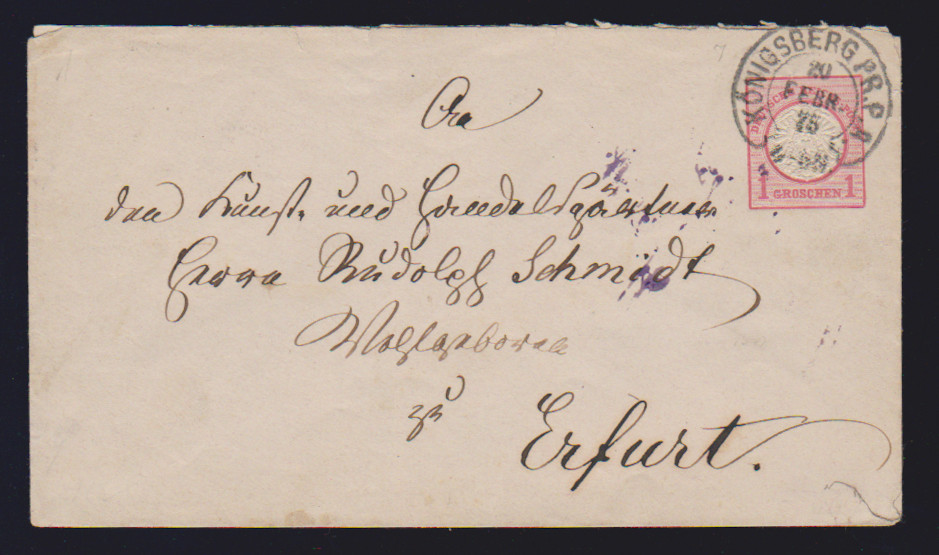 KÖNIGSBERG PR. P. A
20
FEBR.
75
DEUTSCHE REICHS-POST
1 GROSCHEN 1
An
den Kunst- und Handelsgärtner
Herrn Rudolph Schmidt
Wohlgeboren
zu
Erfurt.